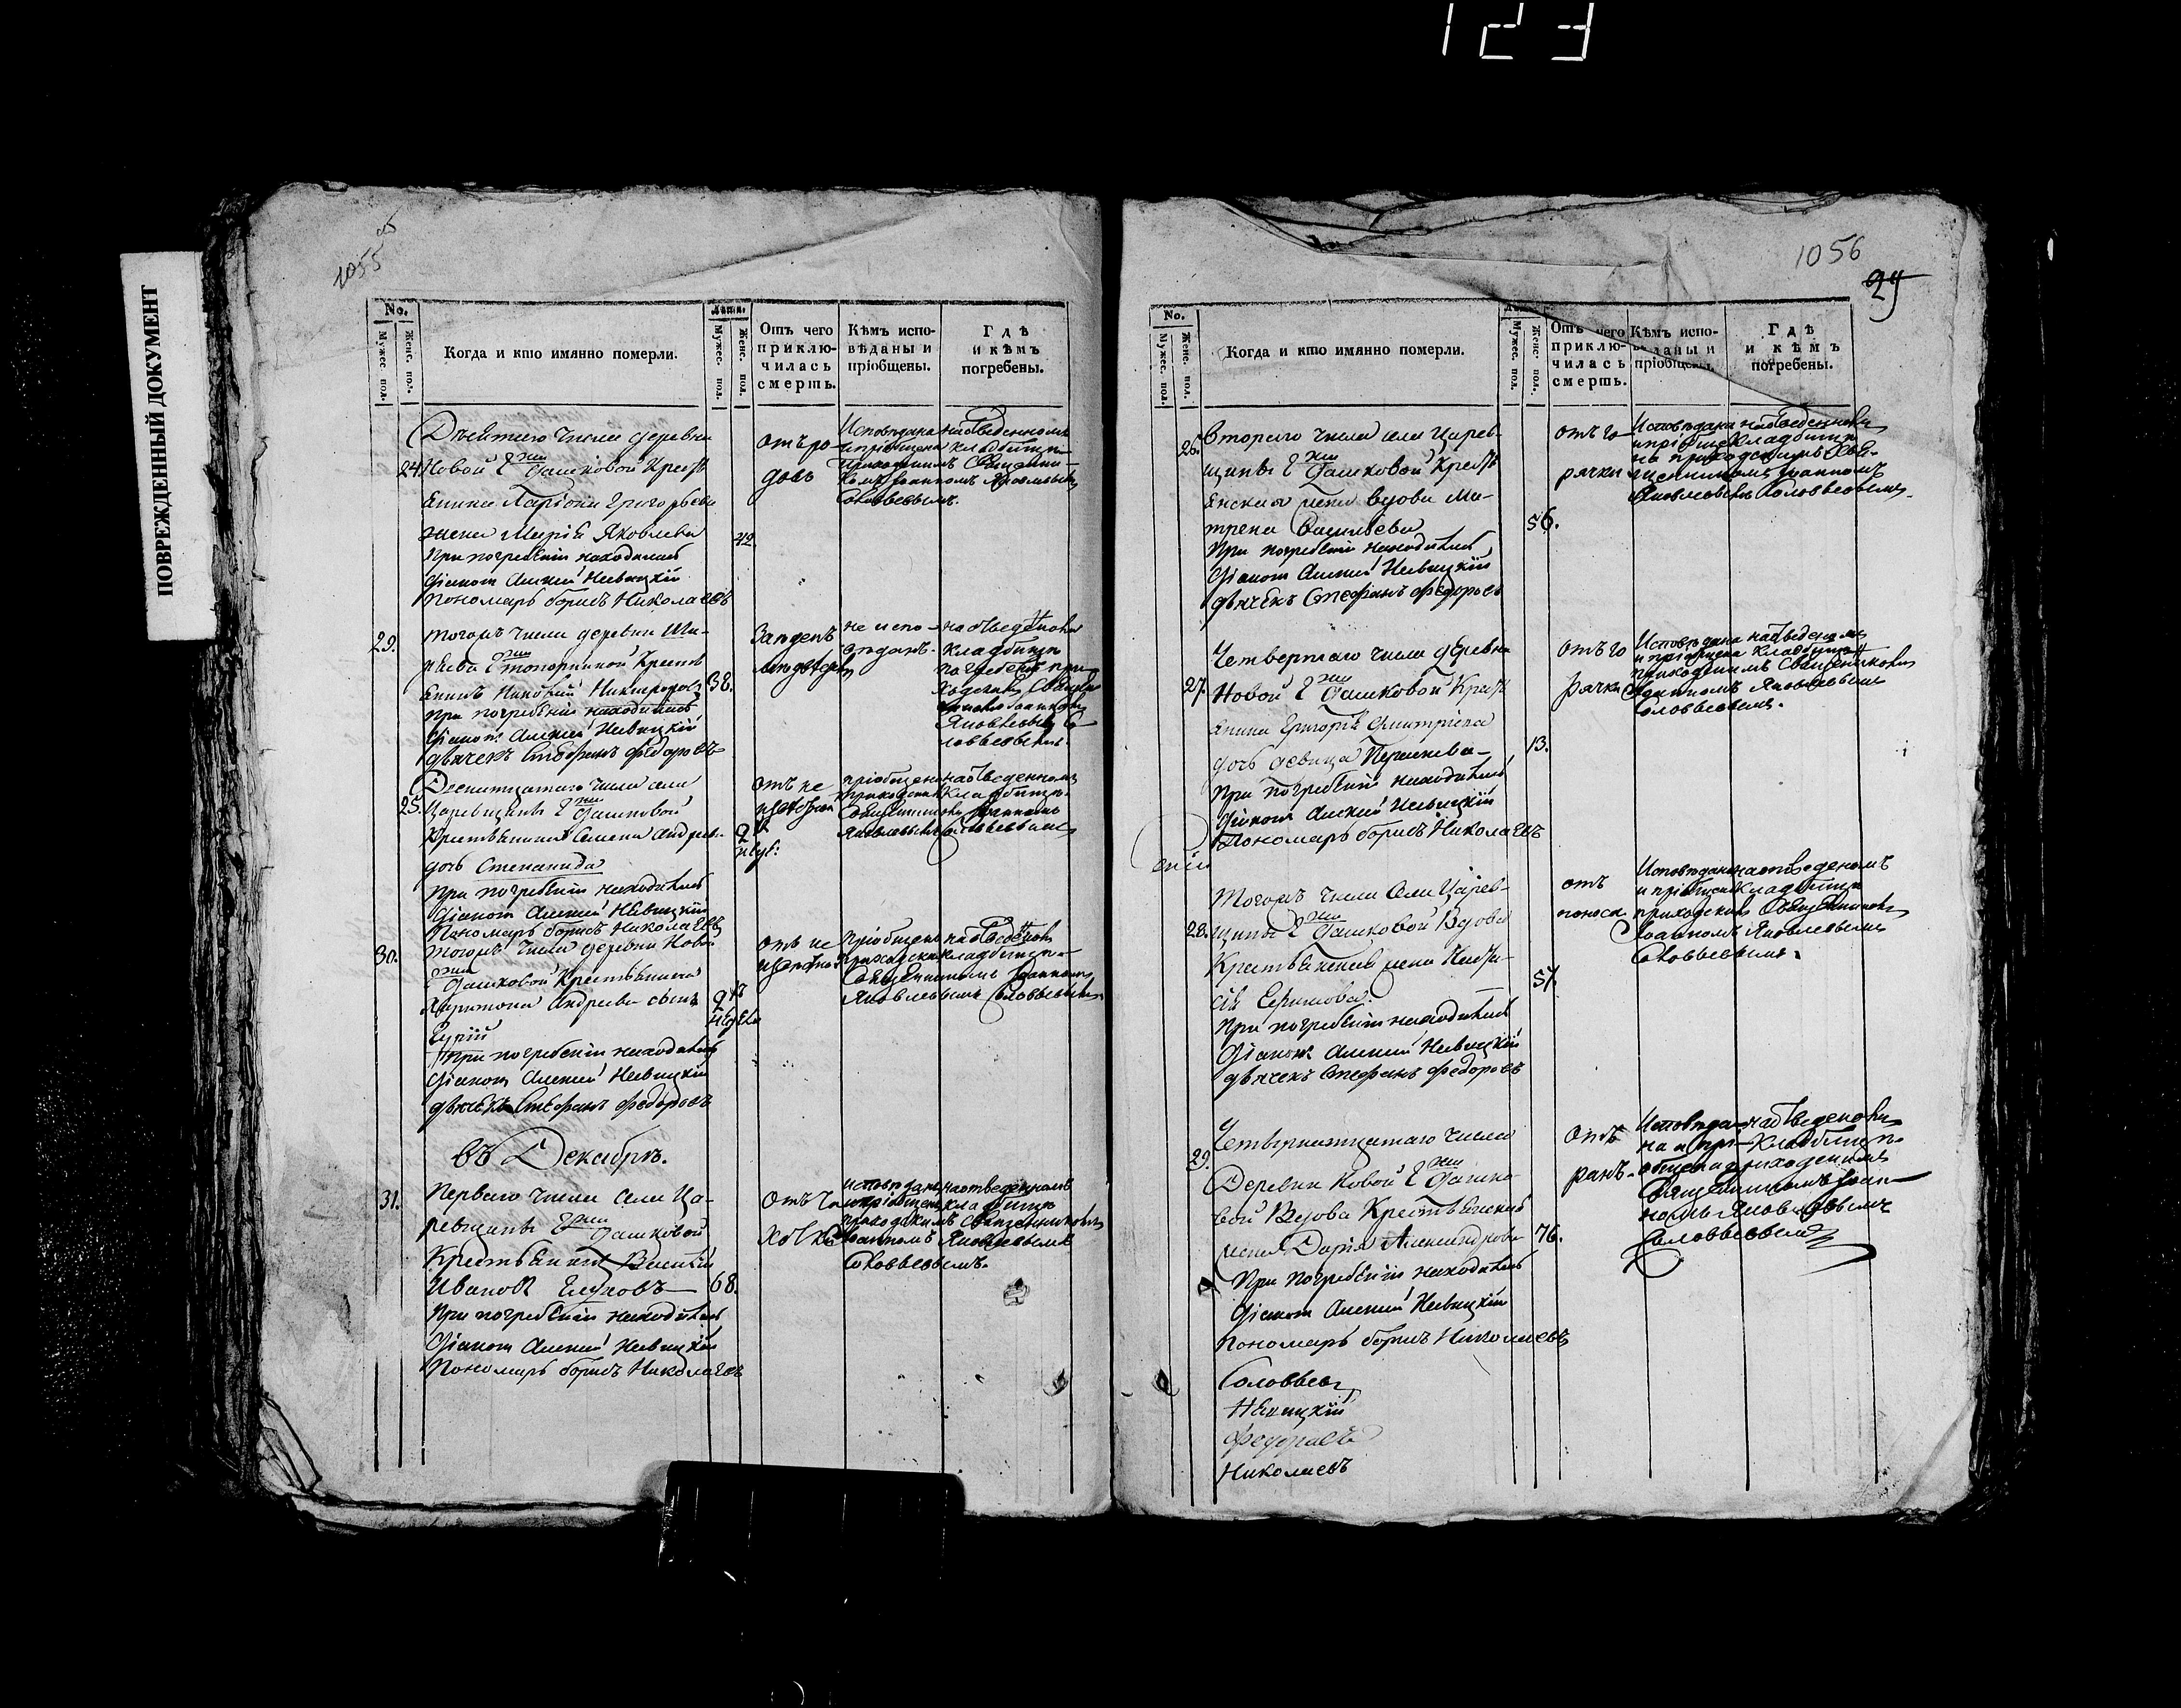 123
ПОВРЕЖДЕННЫЙ ДОКУМЕНТ
1055 об
No.
Мужес. пол.
Женс. пол.
Когда и кто имянно померли.
Лѣта.
Мужес. пол.
Женс. пол.
Отъ чего приклю-
чилась
смерть.
Кѣмъ испо-
вѣданы и
пріобщены.
Гдѣ
и кѣмъ
погребены.
числа деревни
24. Новой Г жи Дашковой Крестъ
янина Ларіона Григорьева
жена Марія Яковлева
42
При погребеніи находились
Діаконъ Алексій Невицкій
Пономарь Борисъ Николаевъ
отъ ро-
довъ
Исповѣдана
и пріобщена
приходскимъ Священни-
комъ Іоанномъ Яковлевымъ
Соловьевымъ.
на отведенномъ
кладбищѣ
29.
тогожъ числа деревни
38.
При погребеніи находились
Діаконъ Алексій Невицкій
дьячекъ Стефанъ Федоровъ
не испо-
вѣданъ.
на отведенномъ
кладбищѣ
погребенъ при-
ходскимъ Священ-
Яковлевымъ Со-
ловьевымъ.
числа села
25. Царевщины Г жи Дашковой
Крестьянина Семена Андреева
дочь Степанида
При погребеніи находились
Діаконъ Алексій Невицкій
Пономарь Борисъ Николаевъ
пріобщена
приходскимъ
Священникомъ Іоанномъ
Яковлевымъ Соловьевымъ
на отведенномъ
кладбищѣ
30.
тогожъ числа деревни Новой
Г жи Дашковой Крестьянина
Харитона Андреева сынъ
Гурій
При погребеніи находились
Діаконъ Алексій Невицкій
дьячекъ Стефанъ Федоровъ
Пріобщенъ
приходскимъ
Священникомъ Іоанномъ
Яковлевымъ Соловьевымъ
на отведенномъ
кладбищѣ
Въ Декабрѣ.
31.
Перваго числа села Ца-
ревщины Г жи Дашковой
Крестьянинъ Василій
Ивановъ
68.
При погребеніи находились
Діаконъ Алексій Невицкій
Пономарь Борисъ Николаевъ
отъ ча-
хотки
исповѣданъ
и пріобщенъ
приходскимъ Священникомъ
Іоанномъ Яковлевымъ
Соловьевымъ.
на отведенномъ
кладбищѣ
1056
29
No.
Мужес. пол.
Женс. пол.
Когда и кто имянно померли.
Мужес. пол.
Женс. пол.
Отъ чего
приклю-
чилась
смерть.
Кѣмъ испо-
вѣданы и
пріобщены.
Гдѣ
и кѣмъ
погребены.
26.
Втораго числа села Царев-
щины Г жи Дашковой Крестъ
янская жена вдова Ма-
трена Васильева
56.
При погребеніи находились
Діаконъ Алексій Невицкій
дьячекъ Стефанъ Федоровъ
отъ го-
рячки
Исповѣдана
и пріобще-
на приходскимъ Свя-
щенникомъ Іоанномъ
Яковлевымъ Соловьевымъ.
на отведенномъ
кладбищѣ
Четвертаго числа деревни
27. Новой Г жи Дашковой Крестъ
янина Григорія Димитріева
дочь девица
13.
При погребеніи находились
Діаконъ Алексій Невицкій
Пономарь Борисъ Николаевъ
отъ го
рячки
Исповѣдана
и пріобщена
приходскимъ Священникомъ
Іоанномъ Яковлевымъ
Соловьевымъ.
на отведенномъ
кладбищѣ
Тогожъ числа Села Царев-
28. щины Г жи Дашковой Вдова
Крестьянская жена
57.
При погребеніи находились
Діаконъ Алексій Невицкій
дьячекъ Стефанъ Федоровъ
отъ
поноса
Исповѣдана
и пріобщена
приходскимъ Священникомъ
Іоанномъ Яковлевымъ
Соловьевымъ.
на отведеномъ
кладбищѣ
29.
Четырнатцатаго числа
Деревни Новой Г жи Дашко-
вой Вдова Крестьянская
жена Дарія Александрова
76.
При погребеніи находились
Діаконъ Алексій Невицкій
Пономарь Борисъ Николаевъ
отъ
ранъ.
Исповѣда-
на и прі-
общена приходскимъ
Священникомъ Іоан-
номъ Яковлевымъ
Соловьевымъ
на отведеномъ
кладбищѣ
Соловьевъ
Невицкій
Федоровъ
Николаевъ